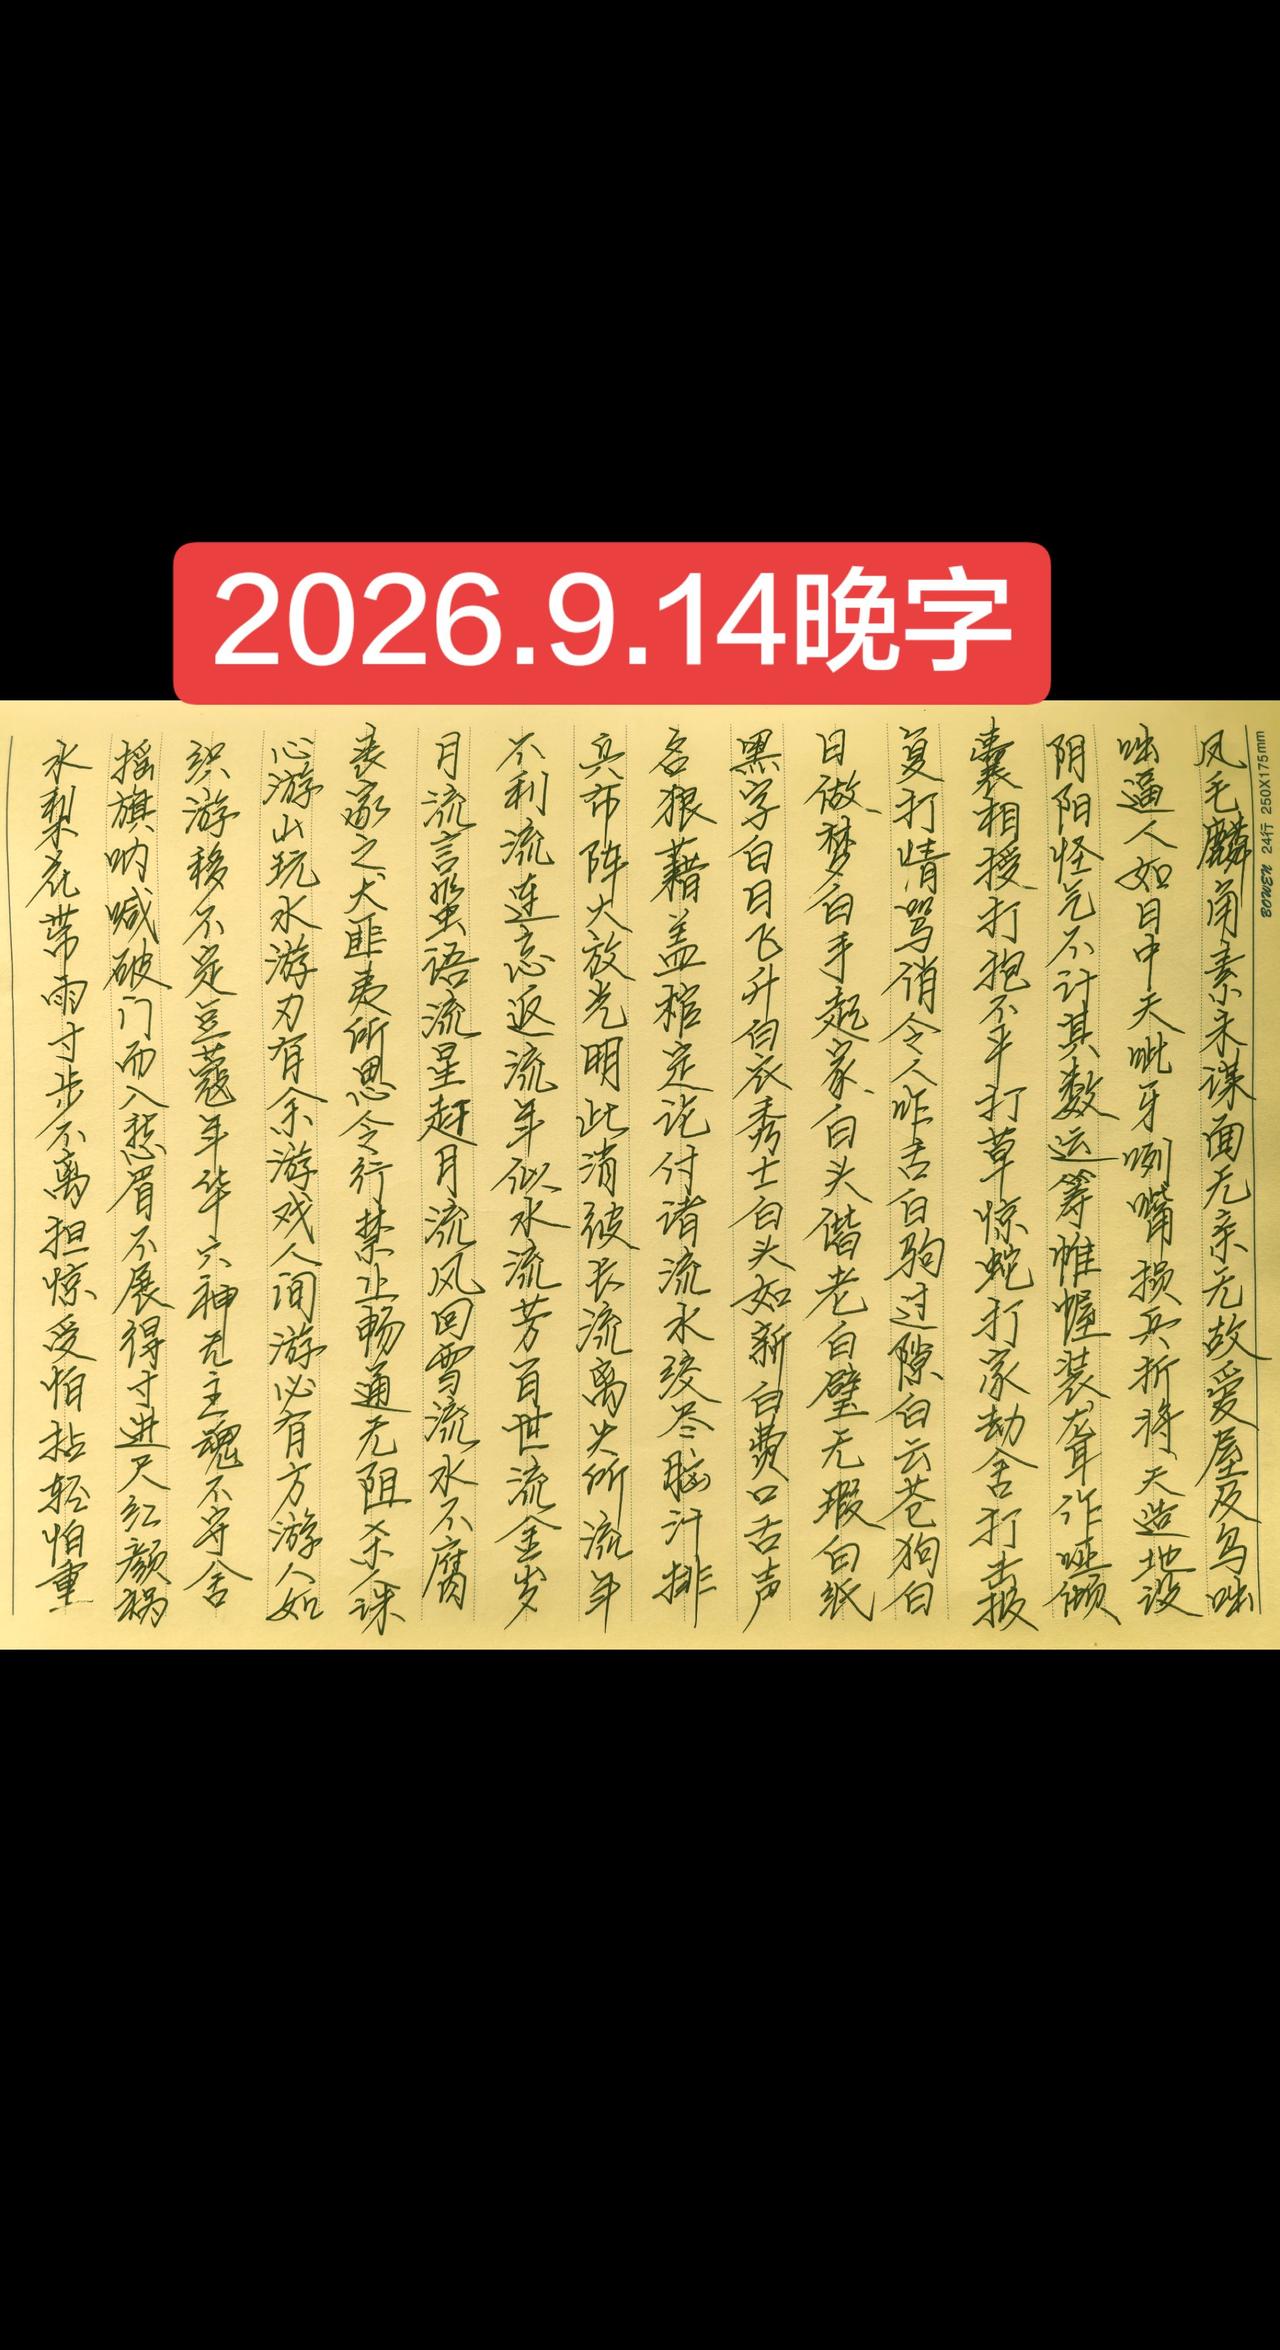 2026.9.14晚字
BOWEN 24行 250X175mm
凤毛麟角素未谋面无亲无故爱屋及乌咄
咄逼人如日中天呲牙咧嘴损兵折将天造地设
阴阳怪气不计其数运筹帷幄装聋作哑倾
囊相授打抱不平打草惊蛇打家劫舍打击报
复打情骂俏令人咋舌白驹过隙白云苍狗白
日做梦白手起家白头偕老白璧无瑕白纸
黑字白日飞升白衣秀士白头如新白费口舌声
名狼藉盖棺定论付诸流水绞尽脑汁排
兵布阵大放光明此消彼长流离失所流年
不利流连忘返流年似水流芳百世流金岁
月流言蜚语流星赶月流风回雪流水不腐
丧家之犬匪夷所思令行禁止畅通无阻杀人诛
心游山玩水游刃有余游戏人间游必有方游人如
织游移不定豆蔻年华六神无主魂不守舍
摇旗呐喊破门而入愁眉不展得寸进尺红颜祸
水梨花带雨寸步不离担惊受怕拈轻怕重